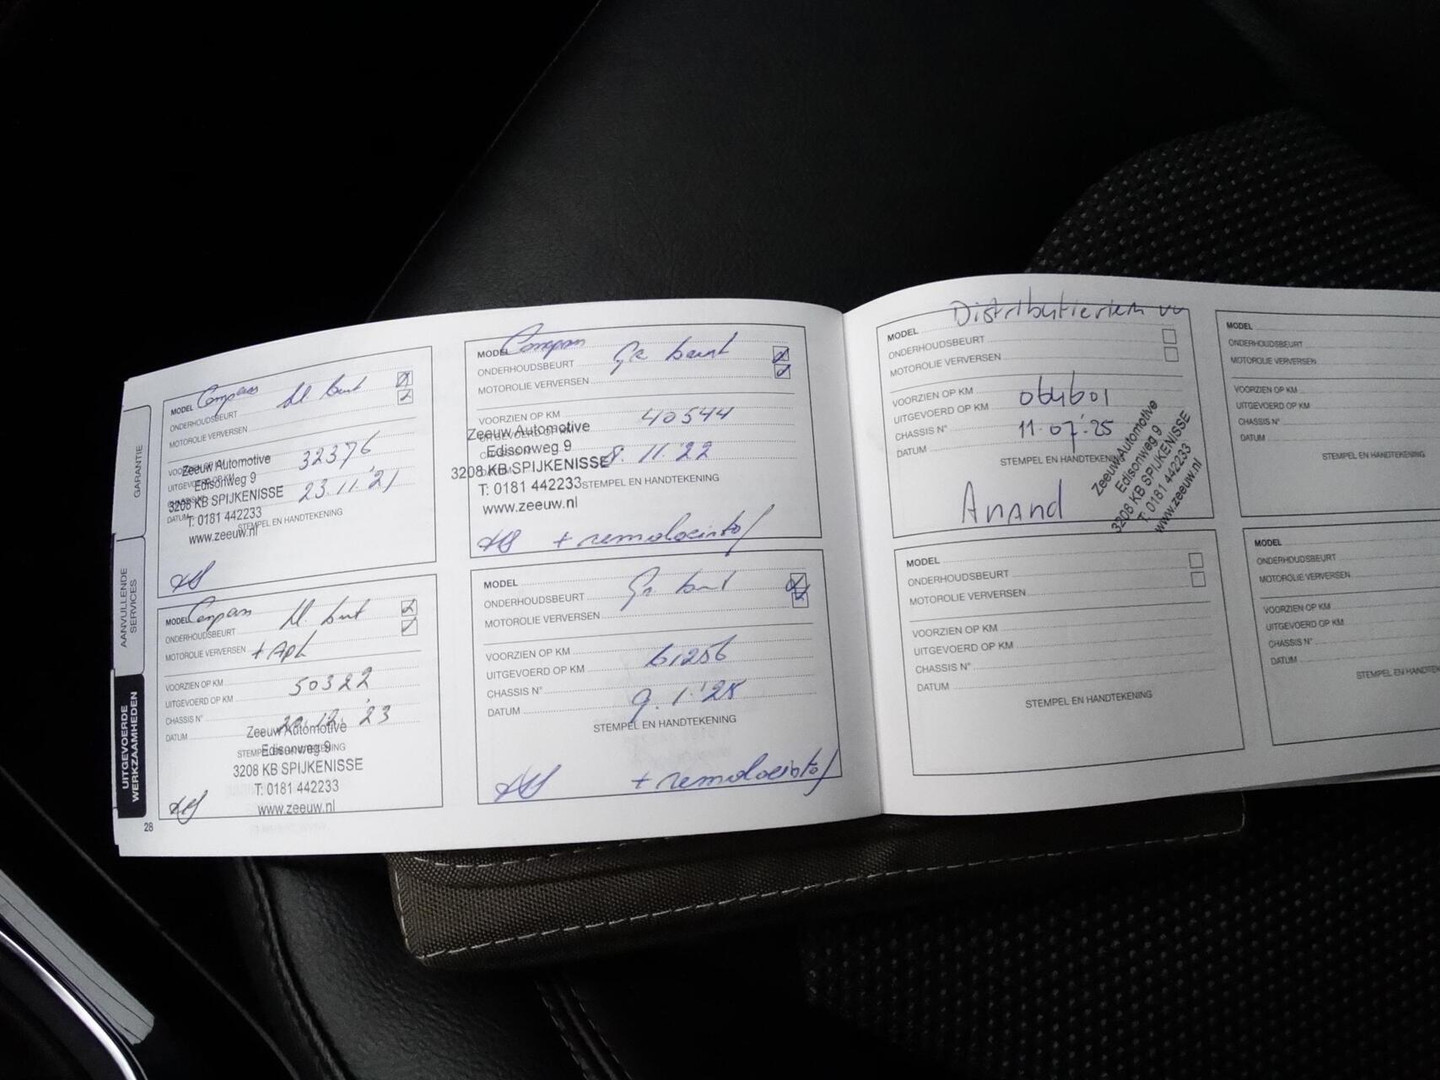 GARANTIE
AANVULLENDE
SERVICES
UITGEVOERDE
WERKZAAMHEDEN
28
MODEL Compass
ONDERHOUDSBEURT
MOTOROLIE VERVERSEN
32376
Zeeuw Automotive
Edisonweg 9
3208 KB SPIJKENISSE
23.11.'21
DATUM
T: 0181 442233
STEMPEL EN HANDTEKENING
www.zeeuw.nl
MODEL Compass
ONDERHOUDSBEURT
MOTOROLIE VERVERSEN + Apk
VOORZIEN OP KM
UITGEVOERD OP KM 50322
CHASSIS N°
DATUM '23
Zeeuw Automotive
Edisonweg 9
3208 KB SPIJKENISSE
T: 0181 442233
www.zeeuw.nl
MODEL Compass
ONDERHOUDSBEURT Gr beurt
MOTOROLIE VERVERSEN
VOORZIEN OP KM
40544
Zeeuw Automotive
Edisonweg 9
3208 KB SPIJKENISSE
8.11.'22
T: 0181 442233
STEMPEL EN HANDTEKENING
www.zeeuw.nl
+ remvloeistof
MODEL
ONDERHOUDSBEURT Gr beurt
MOTOROLIE VERVERSEN
VOORZIEN OP KM
UITGEVOERD OP KM 61256
CHASSIS N°
DATUM 9.1.'25
STEMPEL EN HANDTEKENING
+ remvloeistof
Distributieriem vv
MODEL
ONDERHOUDSBEURT
MOTOROLIE VERVERSEN
VOORZIEN OP KM
UITGEVOERD OP KM 064601
CHASSIS N°
DATUM 11.07.'25
STEMPEL EN HANDTEKENING
Anand
Zeeuw Automotive
Edisonweg 9
3208 KB SPIJKENISSE
T: 0181 442233
www.zeeuw.nl
MODEL
ONDERHOUDSBEURT
MOTOROLIE VERVERSEN
VOORZIEN OP KM
UITGEVOERD OP KM
CHASSIS N°
DATUM
STEMPEL EN HANDTEKENING
MODEL
ONDERHOUDSBEURT
MOTOROLIE VERVERSEN
VOORZIEN OP KM
UITGEVOERD OP KM
CHASSIS N°
DATUM
STEMPEL EN HANDTEKENING
MODEL
ONDERHOUDSBEURT
MOTOROLIE VERVERSEN
VOORZIEN OP KM
UITGEVOERD OP KM
CHASSIS N°
DATUM